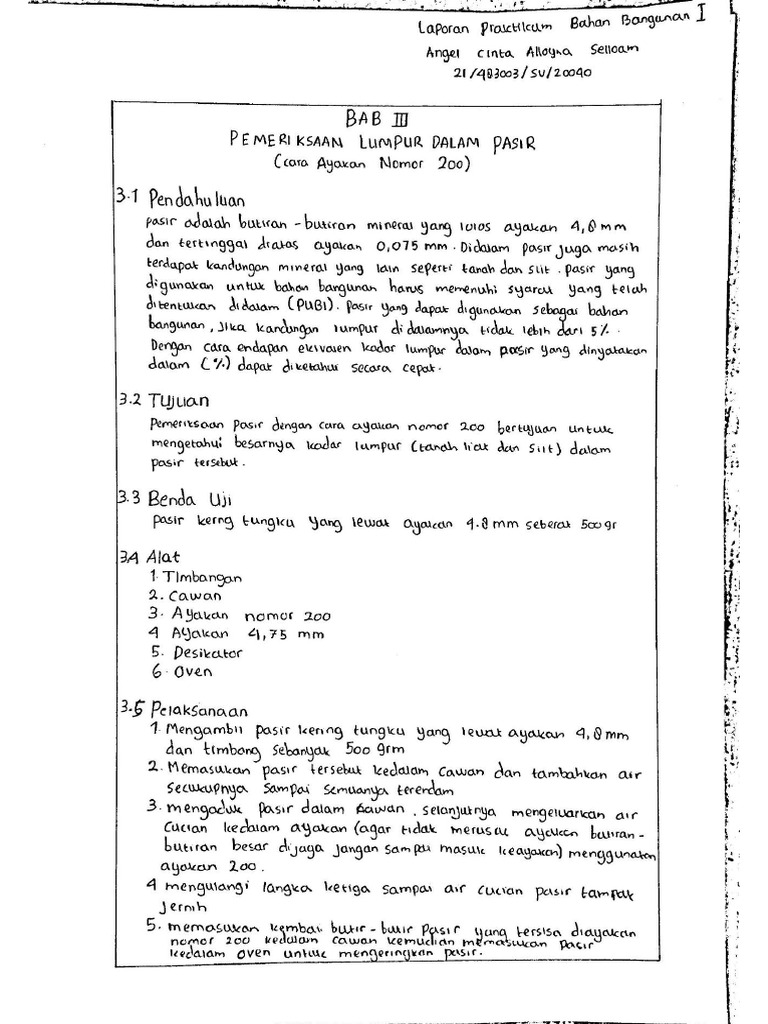 Laporan Praktikum Bahan Bangunan I
Angel Cinta Alloyna Selloam
21/483003/SV/20040
BAB III
PEMERIKSAAN LUMPUR DALAM PASIR
(cara Ayakan Nomor 200)
3.1 Pendahuluan
pasir adalah butiran-butiran mineral yang lolos ayakan 4,8 mm
dan tertinggal diatas ayakan 0,075 mm. Didalam pasir juga masih
terdapat kandungan mineral yang lain seperti tanah dan slit. pasir yang
digunakan untuk bahan bangunan harus memenuhi syarat yang telah
ditentukan didalam (PUBI). pasir yang dapat digunakan sebagai bahan
bangunan, Jika kandungan lumpur didalamnya tidak lebih dari 5%.
Dengan cara endapan ekivalen kadar lumpur dalam pasir yang dinyatakan
dalam (%) dapat diketahui secara cepat.
3.2 Tujuan
Pemeriksaan pasir dengan cara ayakan nomor 200 bertujuan untuk
mengetahui besarnya kadar lumpur (tanah liat dan silt) dalam
pasir tersebut.
3.3 Benda Uji
pasir kerng tungku yang lewat ayakan 4.8 mm seberat 500 gr
3.4 Alat
1. Timbangan
2. Cawan
3. Ayakan nomor 200
4 Ayakan 4,75 mm
5. Desikator
6. Oven
3.5 Pelaksanaan
1. Mengambil pasir kering tungku yang lewat ayakan 4,8 mm
dan timbang sebanyak 500 grm
2. Memasukan pasir tersebut kedalam cawan dan tambahkan air
secukupnya sampai semuanya terendam
3. mengaduk pasir dalam cawan, selanjutnya mengeluarkan air
cucian kedalam ayakan (agar tidak merusak ayakan butiran-
butiran besar dijaga jangan sampai masuk keayakan) menggunakan
ayakan 200.
4 mengulangi langka ketiga sampai air cucian pasir tampak
jernih
5. memasukan kembali butir-butir pasir yang tersisa diayakan
nomor 200 kedalam cawan kemudian memasukan pasir
kedalam oven untuk mengeringkan pasir.